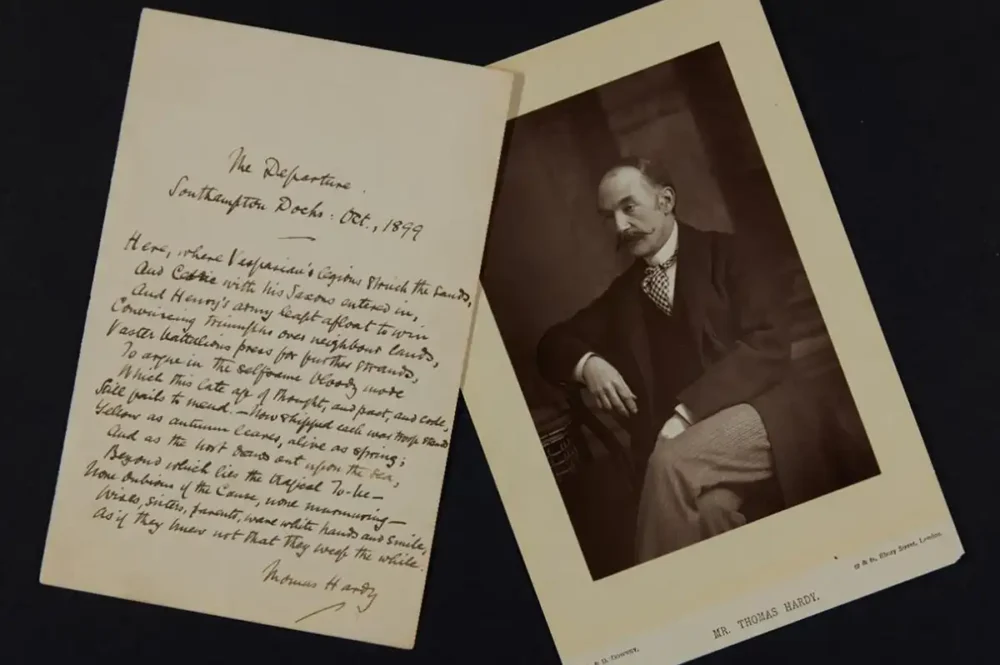 The Departure.
Southampton Docks: Oct., 1899
Here, where Vespasian's legions struck the sands,
And Cerdic with his Saxons entered in,
And Henry's army leapt afloat to win
Convincing triumphs over neighbour lands,
Vaster battalions press for further strands,
To argue in the selfsame bloody mode
Which this late age of thought, and pact, and code,
Still fails to mend. — Now shipped each war-troop stands
Yellow as autumn leaves, alive as spring;
And as the host draws out upon the sea,
Beyond which lies the tragical To-be—
None dubious of the Cause, none murmuring—
Wives, sisters, parents, wave white hands and smile,
As if they knew not that they weep the while.
Thomas Hardy
MR. THOMAS HARDY.
Ebury Street, London.